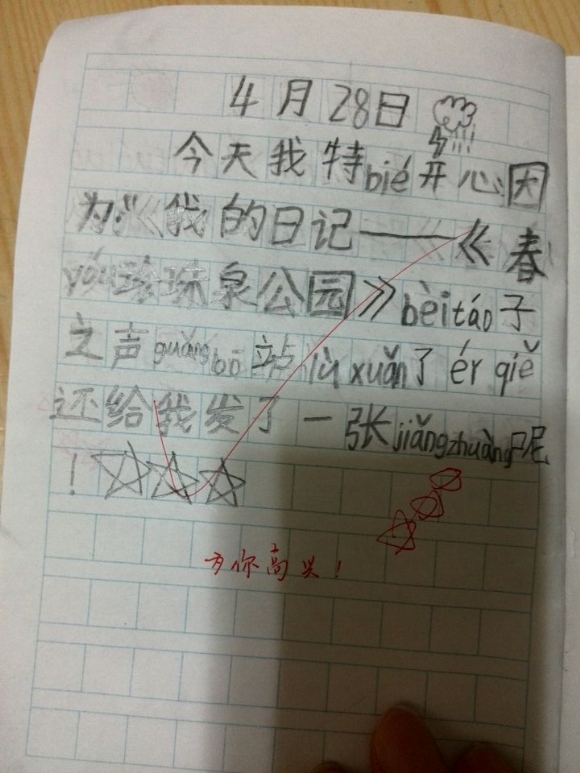 4月28日
今天我特bié开心因
为《我的日记——《春
yóu珍珠泉公园》bèitáo子
之声guǎngbō站lù xuǎn了ér qiě
还给我发了一张jiǎngzhuàng呢
!
为你高兴!